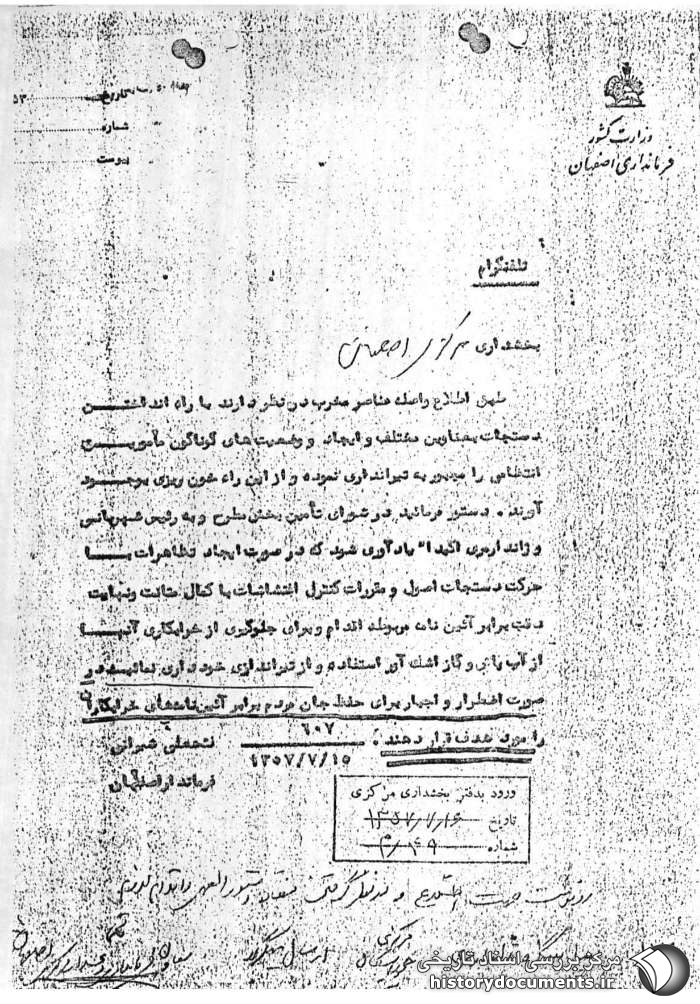 وزارت کشور
فرمانداری اصفهان
تاریخ
شماره
پیوست
تلفنگرام
بخشداری مرکزی اصفهان
طبق اطلاع واصله عناصر مخرب در نظر دارند با راه انداختن
دستجات بعناوین مختلف و ایجاد و وضعیت های گوناگون مأمورین
انتظامی را مجبور به تیراندازی نموده و از این راه خون ریزی بوجود
آورند . دستور فرمائید در شورای تأمین بخش مطرح و به رئیس شهربانی
و ژاندارمری اکیدا" یادآوری شود که در صورت ایجاد تظاهرات با
حرکت دستجات اصول و مقررات کنترل اغتشاشات با کمال متانت ونهایت
دقت برابر آئین نامه مربوطه اقدام و برای جلوگیری از خرابکاری آنها
از آب پاش و گاز اشک آور استفاده و از تیراندازی خودداری نمایند در
صورت اضطرار و اجبار برای حفظ جان مردم برابر آئین نامه پای خرابکاران
را مورد هدف قرار دهند .
۶۰۷
۱۳۵۷/۷/۱۵
فتحعلی شیرانی
فرماندار اصفهان
ورود بدفتر بخشداری مرکزی
تاریخ ۱۳۵۷/۷/۱۶
شماره
رونوشت جهت اطلاع و در نظر گرفتن
مرکز بررسی اسناد تاریخی
historydocuments.ir